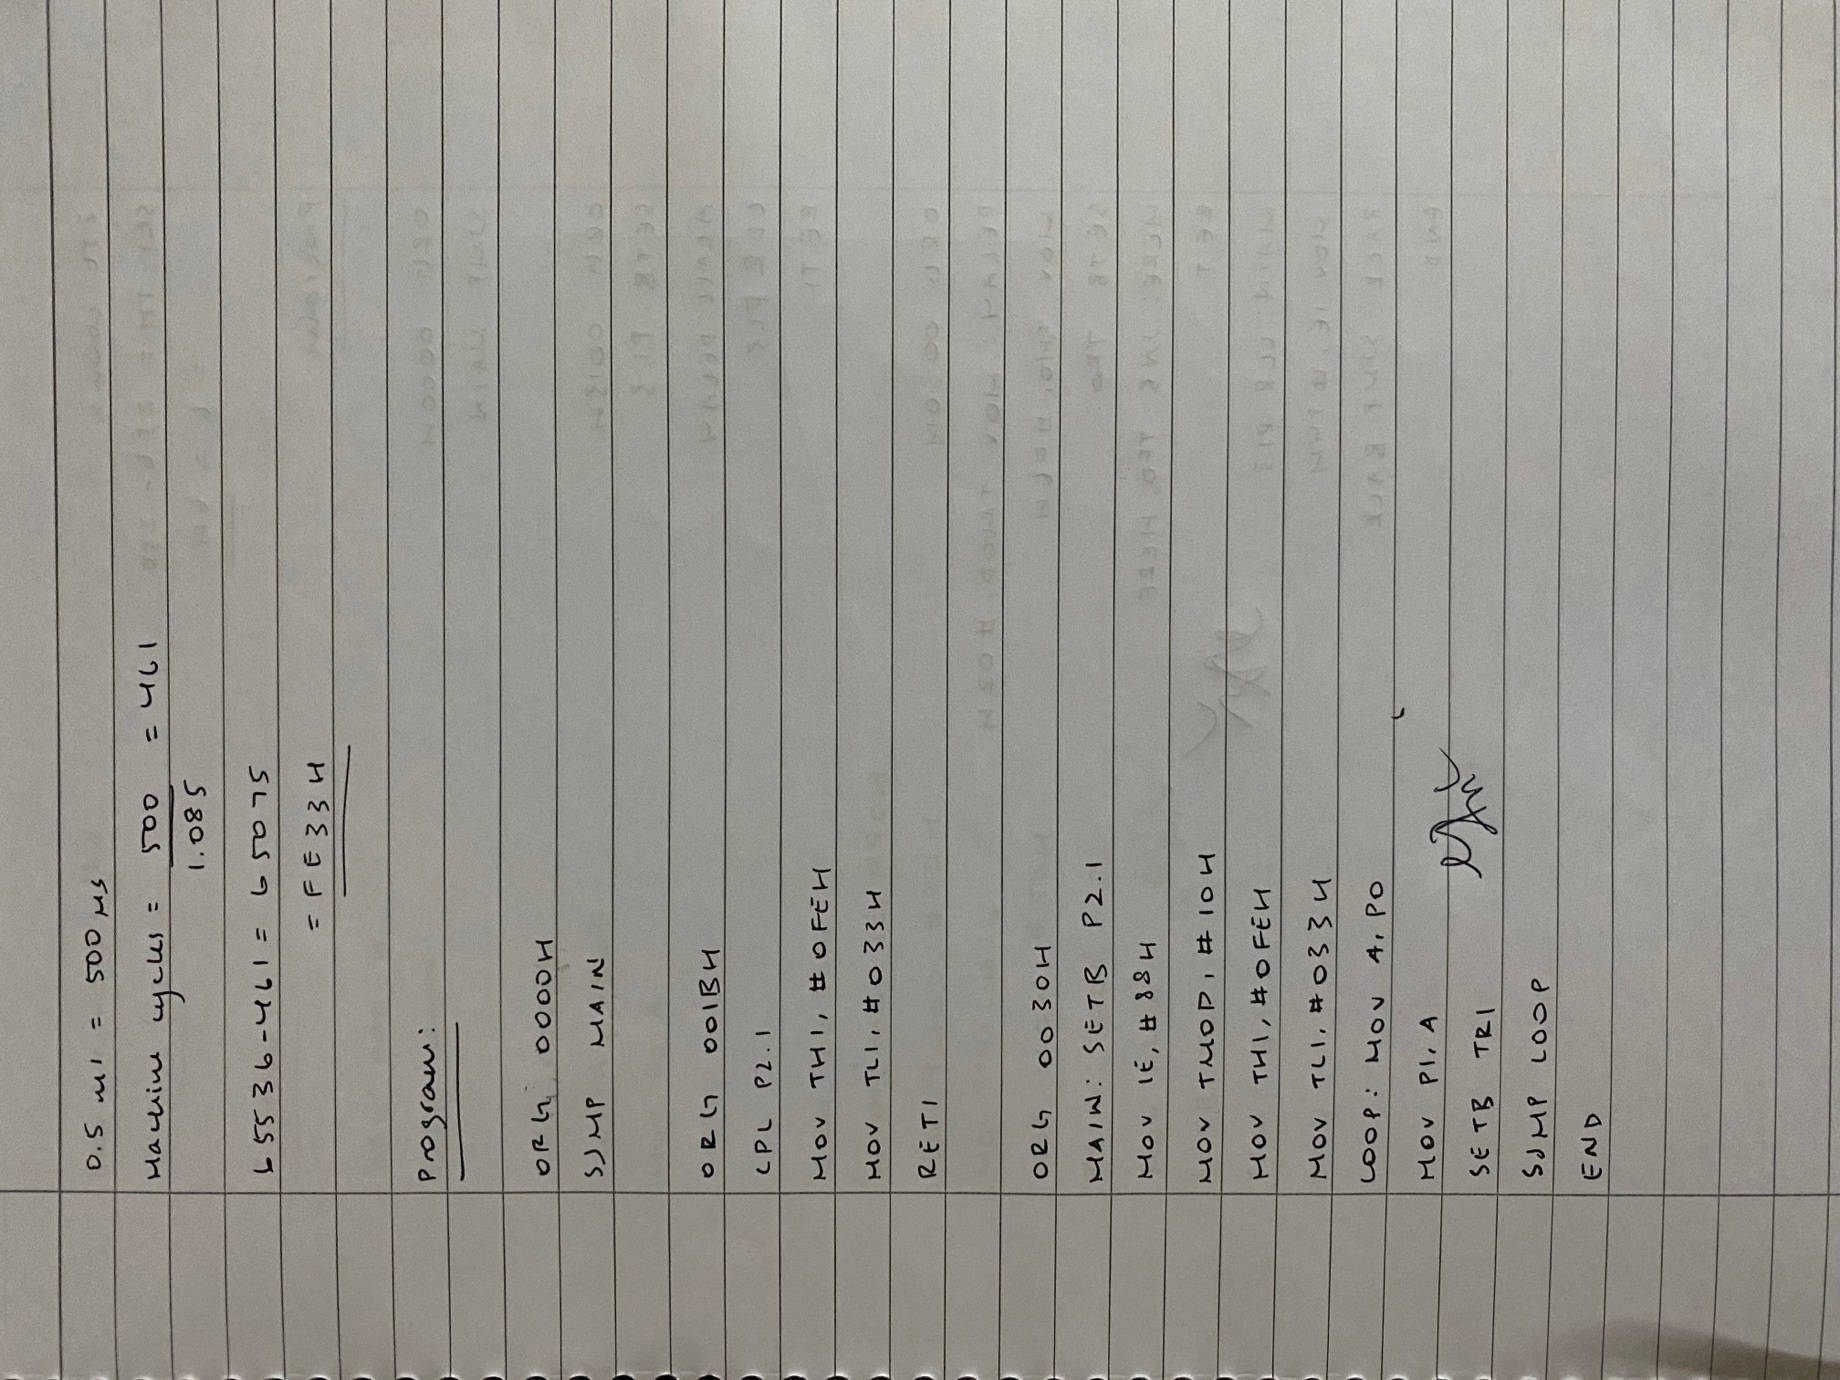 0.5 ms = 500 μs
Machine cycles = 500 = 461
1.085
65536-461 = 65075
= FE33H
Program:
ORG 0000H
SJMP MAIN
ORG 001BH
CPL P2.1
MOV TH1, #0FEH
MOV TL1, #033H
RETI
ORG 0030H
MAIN: SETB P2.1
MOV IE, #88H
MOV TMOD, #10H
MOV TH1, #0FEH
MOV TL1, #033H
LOOP: MOV A, P0
MOV P1, A
SETB TR1
SJMP LOOP
END